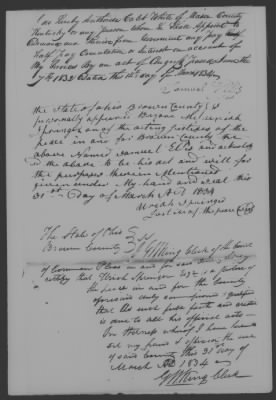 do hereby authorise Caleb White of Mason County
Kentucky or any person whom he shall appoint to
Receive any
half pay Commutation or Interest on account of
My Services By an act of Congress passed June the
7th 1832 Dated this 31st day of March 1834
Samuel Ellis
The State of Ohio Brown County
Personally appeared Before Me Uriah
Springer one of the acting Justices of the
peace in and for Brown County the
above Named Samuel Ellis and acknowledged
the above to be his act and will for
the purposes therein Mentioned
given under My hand and seal this
31st Day of March AD 1834
Uriah Springer
Justice of the peace
The State of Ohio
Brown County SS I G W King Clerk of the Court
of Common Pleas in and for said County
certify that Uriah Springer Esq is a justice of
the peace in and for the County
aforesaid duly commissioned
that as such full faith and credit
is due to all his official acts
In testimony whereof I have hereunto
set my hand & affixed the seal
of said County this 31st day of
March AD 1834
G W King Clerk